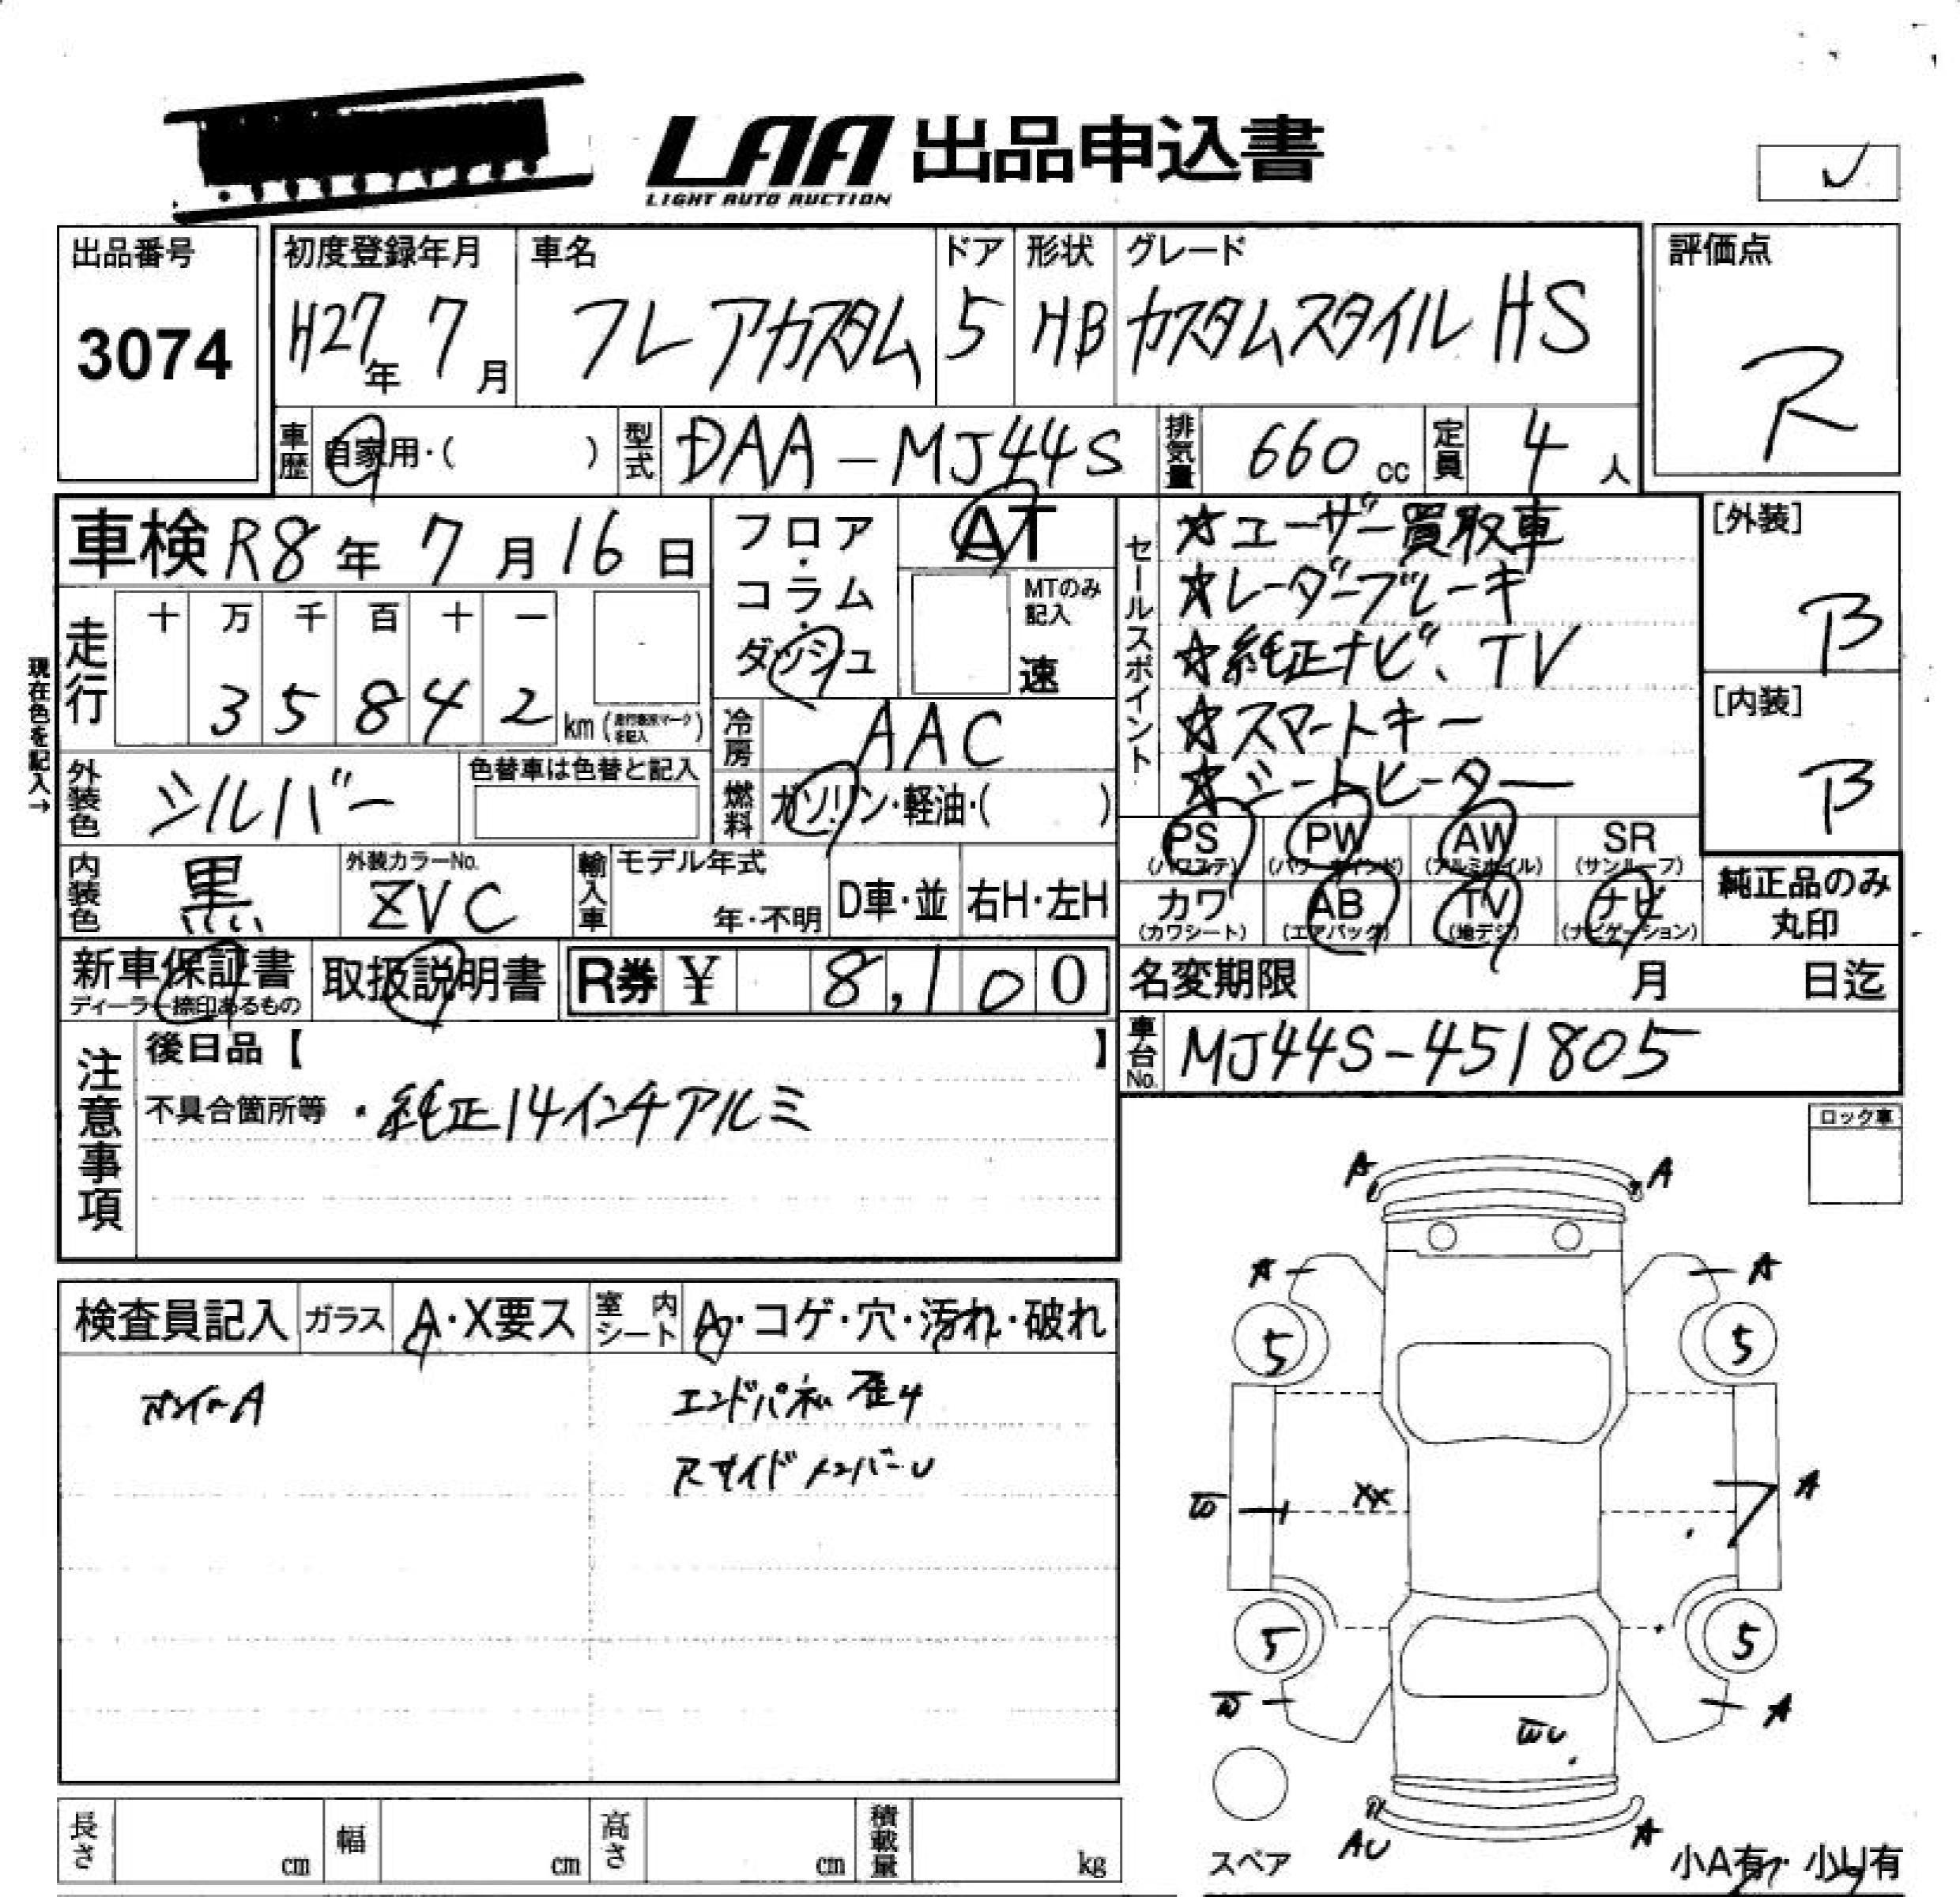 LAA 出品申込書
LIGHT AUTO AUCTION
出品番号
3074
初度登録年月
H27年 7月
車名
フレアカスタム
ドア
5
形状
HB
グレード
カスタムスタイル HS
評価点
R
車歴 自家用・( )
型式 DAA-MJ44S
排気量 660 cc
定員 4 人
車検 R8年 7月 16日
フロア・コラム・ダッシュ
AT
MTのみ記入
速
セールスポイント
☆ユーザー買取車
☆レーダーブレーキ
☆純正ナビ、TV
☆スマートキー
☆シートヒーター
[外装]
B
[内装]
B
現在色を記入→
走行
十 万 千 百 十 一
3 5 8 4 2 km
冷房 AAC
燃料 ガソリン・軽油・( )
外装色 シルバー
色替車は色替と記入
内装色 黒
外装カラーNo.
ZVC
輸入車
モデル年式
年・不明
D車・並
右H・左H
PS (パワステ)
PW (パワーウインド)
AW (アルミホイル)
SR (サンルーフ)
カワ (カワシート)
AB (エアバッグ)
TV (地デジ)
ナビ (ナビゲーション)
純正品のみ丸印
新車保証書
ディーラー捺印あるもの
取扱説明書
R券 ¥ 8,100
名変期限 月 日迄
車台No. MJ44S-451805
注意事項
後日品【 】
不具合箇所等 ・純正14インチアルミ
ロック車
検査員記入
ガラス A・X要ス
室内シート A・コゲ・穴・汚れ・破れ
ホイールA
エンドパネル歪サ
RサイドメンバーU
A A
A A
5 5
XX
A
5 5
A
AU
A
スペア
小A有・小U有
長さ cm
幅 cm
高さ cm
積載量 kg